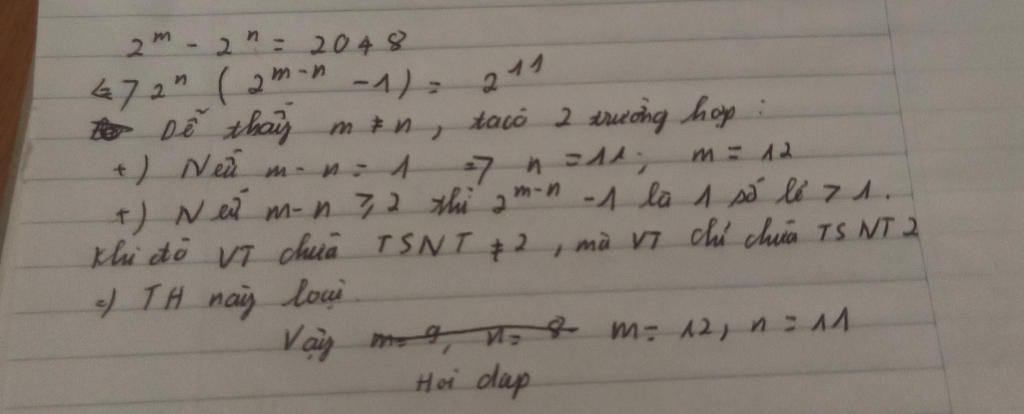 2^m - 2^n = 2048
<=> 2^n ( 2^{m-n} - 1) = 2^{11}
Dễ thấy m ≠ n, ta có 2 trường hợp :
+) Nếu m - n = 1 => n = 11; m = 12
+) Nếu m - n ≥ 2 thì 2^{m-n} - 1 là 1 số lẻ > 1.
Khi đó VT chứa TSNT ≠ 2, mà VT chỉ chứa TSNT 2
=) TH này loại.
Vậy m = 9, n = 8 m = 12, n = 11
Hoi dap